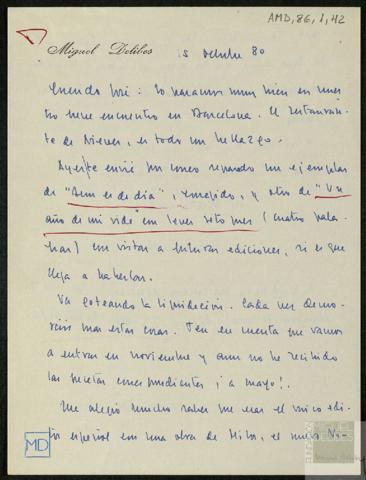 AMD, 86, 1, 42
Miguel Delibes
5 octubre 80
Querido José: Lo pasamos muy bien en nues-
tro breve encuentro en Barcelona. El restauran-
te de Nieves, es todo un hallazgo.
Ayer te envié por correo separado un ejemplar
de "Aún es de día", corregido, y otro de "Un
año de mi vida" con leves retoques (cuatro pala-
bras) con vistas a futuras ediciones, si es que
llega a haberlas.
Va goteando la liquidación. Cada vez demo-
ráis más estas cosas. Ten en cuenta que vamos
a entrar en noviembre y aún no he recibido
las pesetas correspondientes ¡a mayo!.
Me alegró mucho saber que eras el único edi-
tor español con una obra de Milos, el nuevo No-
MD